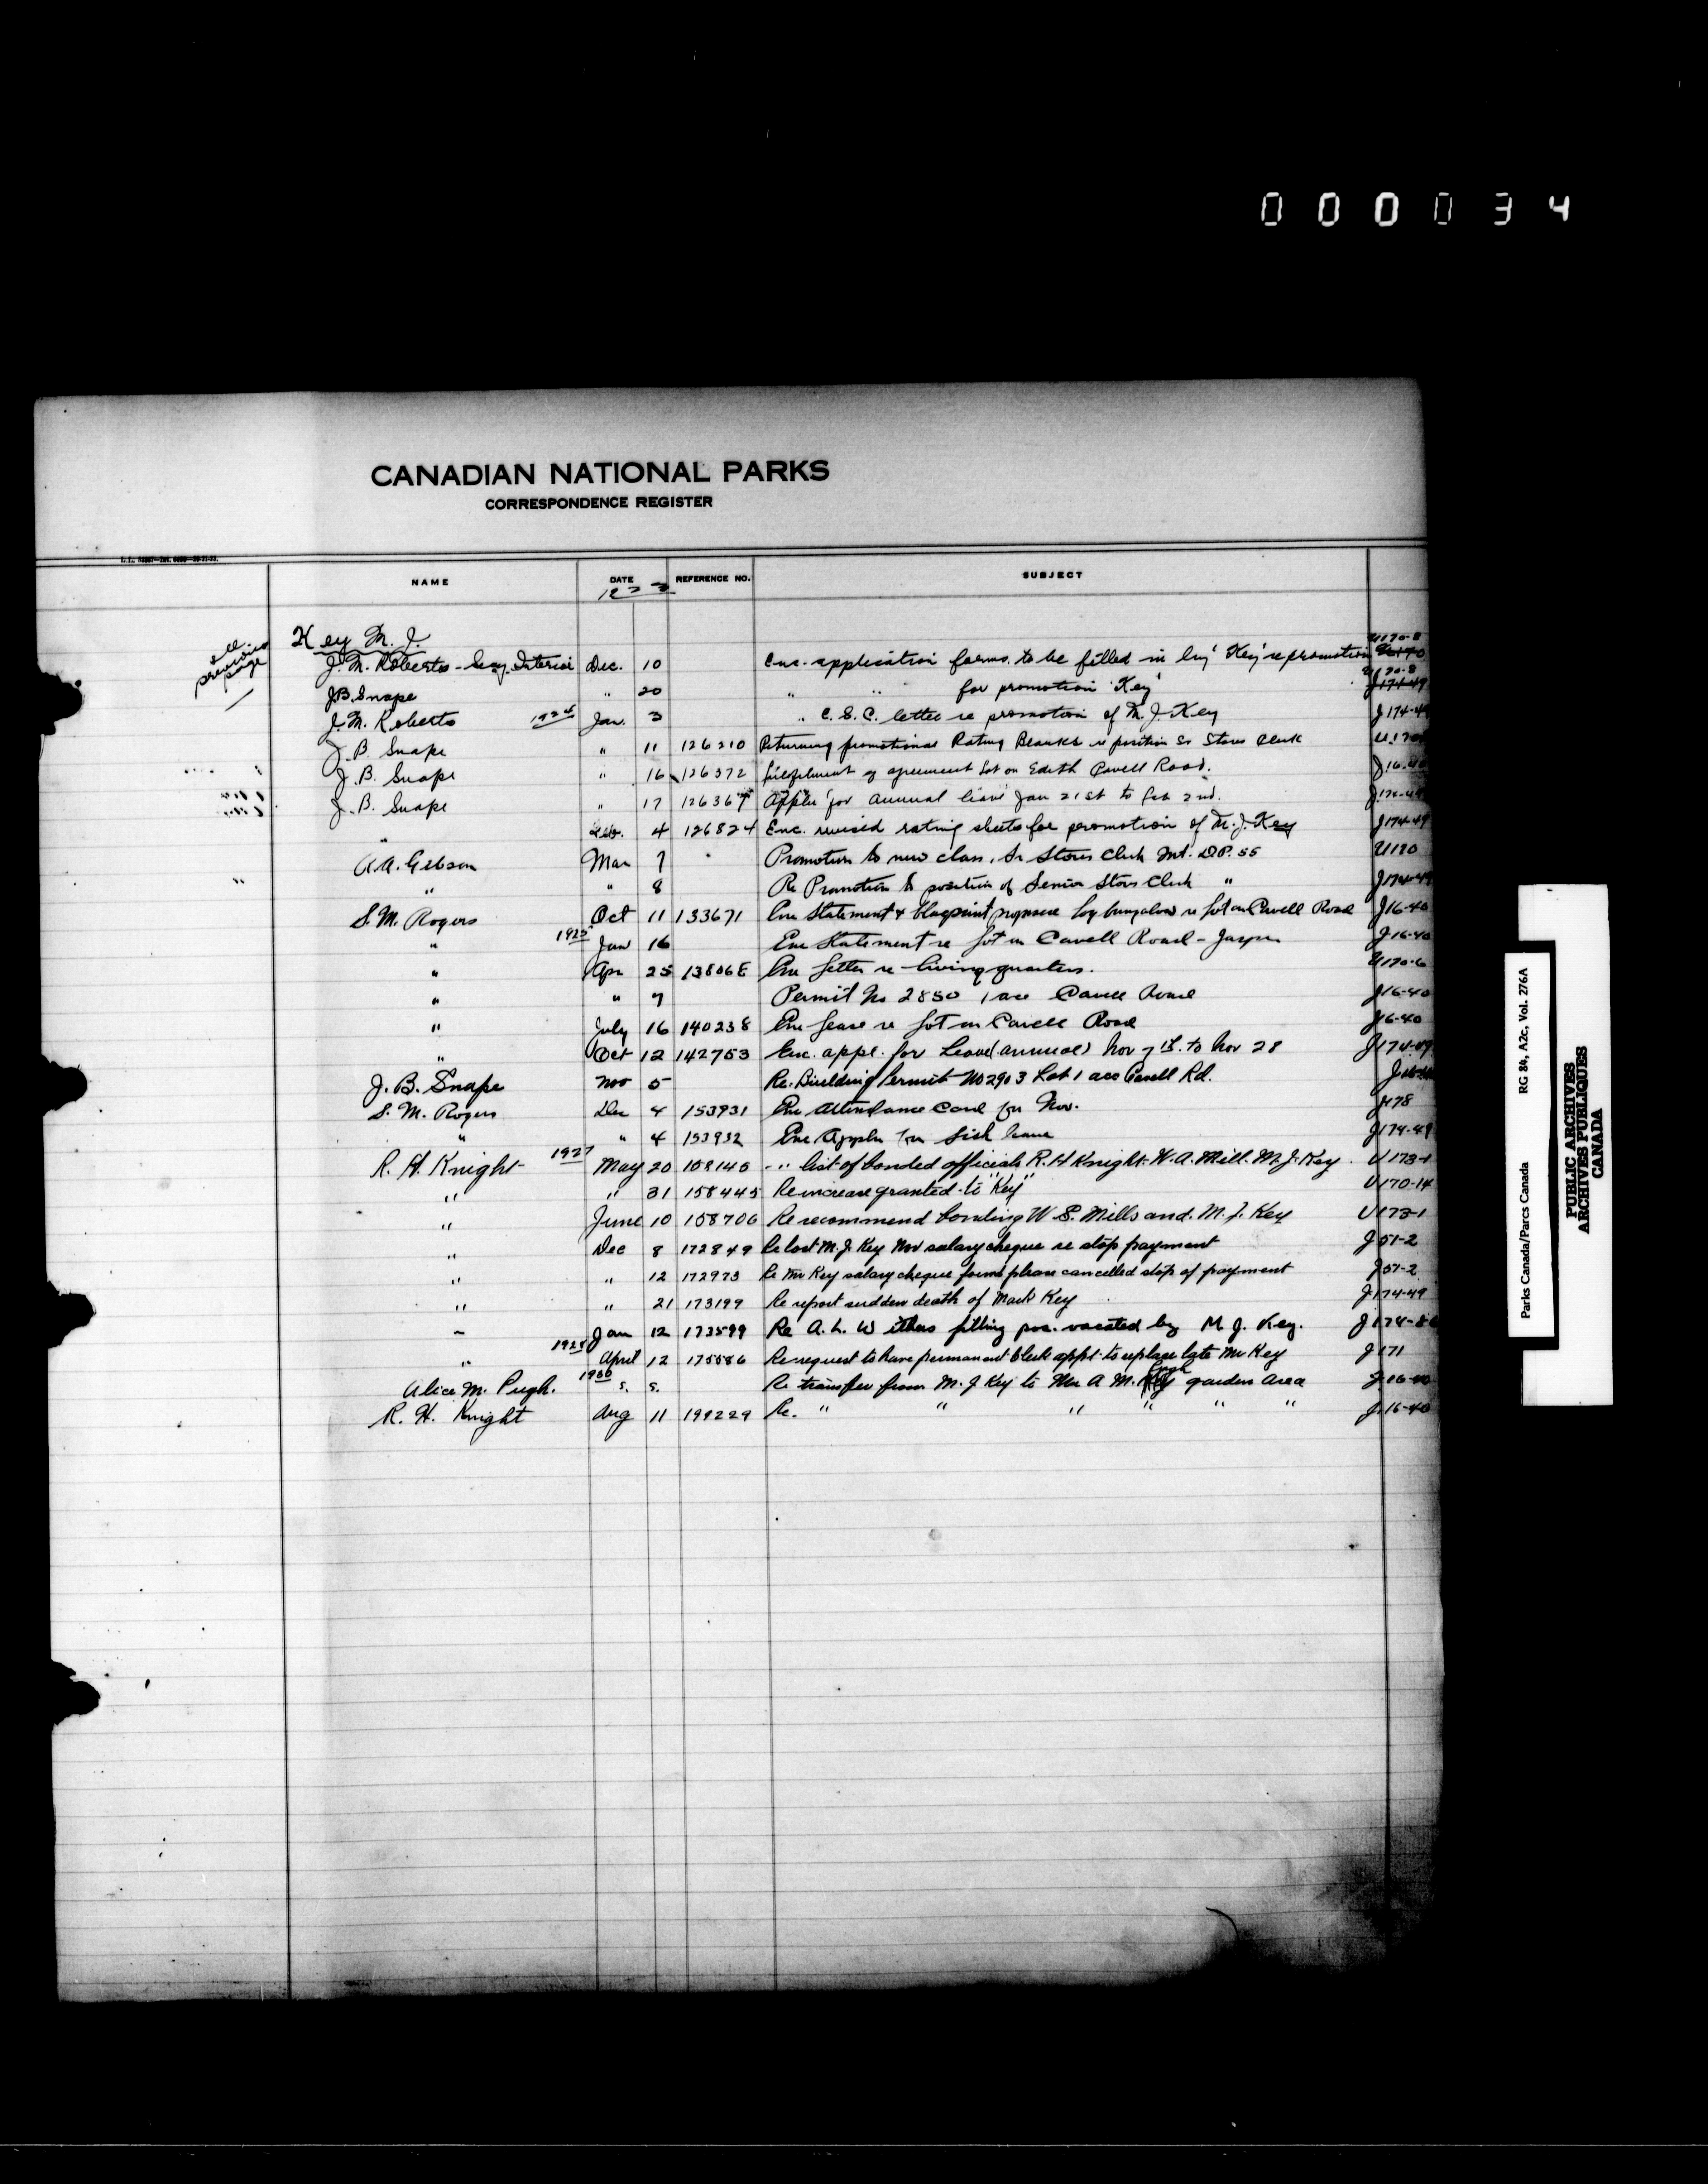 000034
CANADIAN NATIONAL PARKS
CORRESPONDENCE REGISTER
NAME DATE REFERENCE NO. SUBJECT
192
see previous page
Key M. J. U170-8
J. M. Roberts - Secy. Interior Dec. 10 Enc. application forms to be filled in by "Key" re promotion
J.B. Snape " 20 " " for promotion "Key" J174-49
J. M. Roberts 1924 Jan. 3 " C. S. C. letter re promotion of M. J. Key J174-49
J. B Snape " 11 126210 Returning promotional Rating Blanks re position Sr Stores Clerk U.170
J. B. Snape " 16 126372 of agreement Lot on Edith Cavell Road. J.16-40
J. B. Snape " 17 126367 Appln for annual leave Jan 21st to Feb 2nd. J.174-49
" Feb. 4 126824 Enc. revised rating sheets for promotion of M. J. Key J174-49
A.A. Gibson Mar 7 Promotion to new class, Sr Stores Clerk Mt. D.P. 55 U170
" " 8 Re Promotion to position of Senior Stores Clerk " J174-49
S. M. Rogers Oct 11 133671 Enc Statement & blueprint proposed log bungalow re lot on Cavell Road J16-40
" 1925 Jan 16 Enc Statement re lot on Cavell Road - Jasper J-16-40
" Apr 25 13806E Enc letter re living quarters. U170-6
" " 7 Permit No 2850 1 acc Cavell Road J16-40
" July 16 140238 Enc lease re lot on Cavell Road J16-40
" Oct 12 142753 Enc. appl. for Leave (annual) Nov 7th. to Nov 28 J174-49
J. B. Snape Nov 5 Re. Building Permit No 2903 Lot 1 acc Cavell Rd.
S. M. Rogers Dec 4 153931 Enc Attendance Card for Nov. J178
" " 4 153932 Enc Appln for Sick leave J174-49
R. H. Knight - 1927 May 20 158140 - " list of bonded officials R. H Knight. W. A. Mill. M. J. Key. U173-1
" " 31 158445 Re increase granted to "Key" U170-14
" June 10 158706 Re recommend bonding W. S. Mills and. M. J. Key U173-1
" Dec 8 172849 Re lost M. J. Key Nov salary cheque re stop payment J51-2
" " 12 172973 Re Mr Key salary cheque found please cancelled stop of payment J51-2
" " 21 173199 Re report sudden death of Mark Key J174-49
" Jan 12 173599 Re A. L. Withers filling pos. vacated by M J. Key. J174-8
" 1928 April 12 175586 Re request to have permanent clerk appt. to replace late Mr Key J171
Alice M. Pugh. 1930 s. s. Re transfer from M. J Key to Mrs A M. Pugh garden area J.16-40
R. H. Knight Aug 11 199229 Re. " " " " " " J.16-40
Parks Canada/Parcs Canada RG 84, A2c, Vol. 276A
PUBLIC ARCHIVES
ARCHIVES PUBLIQUES
CANADA